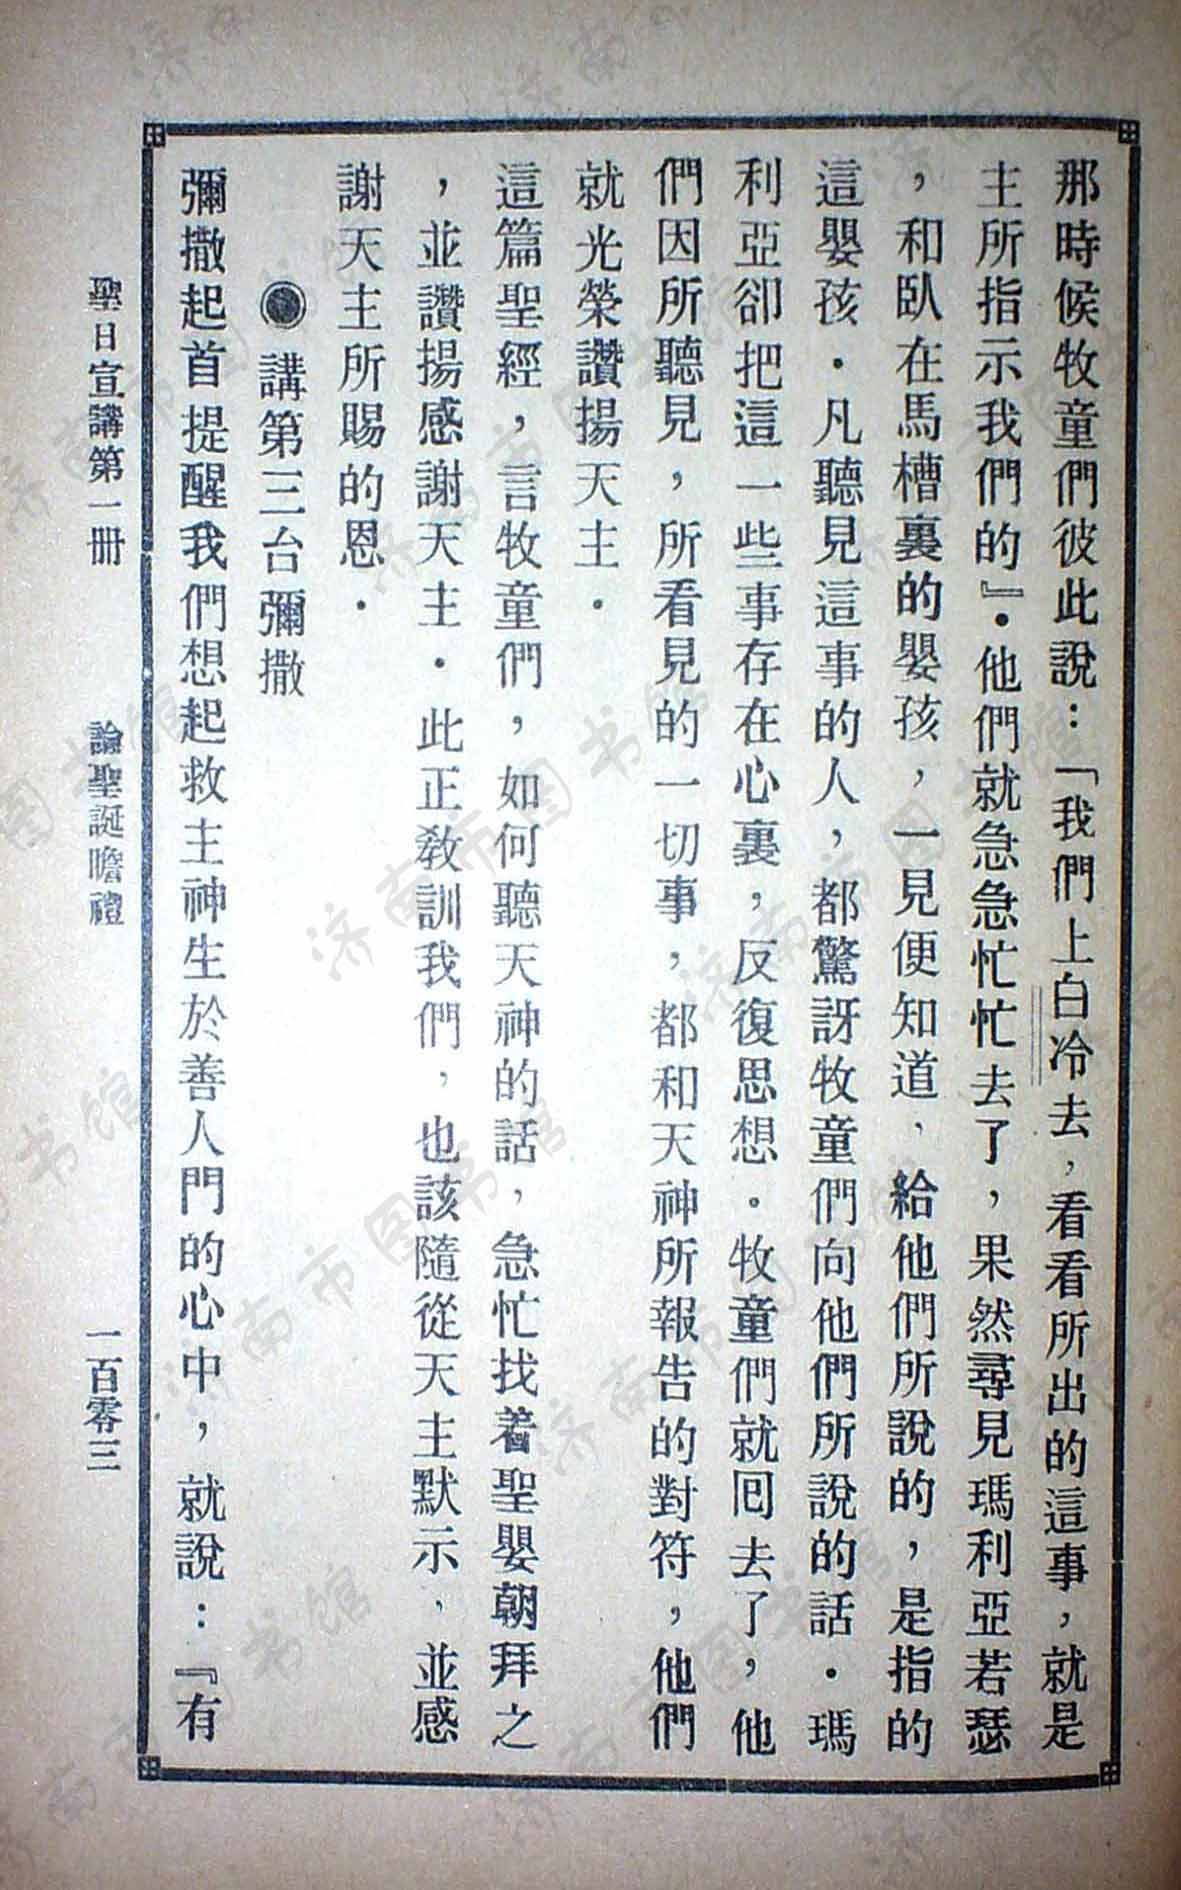 那時候牧童們彼此說：「我們上白冷去，看看所出的這事，就是
主所指示我們的』．他們就急急忙忙去了，果然尋見瑪利亞若瑟
，和臥在馬槽裏的嬰孩，一見便知道，給他們所說的，是指的
這嬰孩．凡聽見這事的人，都驚訝牧童們向他們所說的話．瑪
利亞卻把這一些事存在心裏，反復思想。牧童們就囘去了，他
們因所聽見，所看見的一切事，都和天神所報告的對符，他們
就光榮讚揚天主．
這篇聖經，言牧童們，如何聽天神的話，急忙找着聖嬰朝拜之
，並讚揚感謝天主．此正敎訓我們，也該隨從天主默示，並感
謝天主所賜的恩．
◉講第三台彌撒
彌撒起首提醒我們想起救主神生於善人門的心中，就說：『有
聖日宣講第一冊　論聖誕瞻禮　一百零三
济南市图书馆